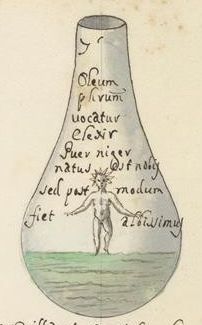 Oleum
phrum̄
uocatur
Elexir
Puer niger
natus est nobis
sed post modum
fiet albissimus